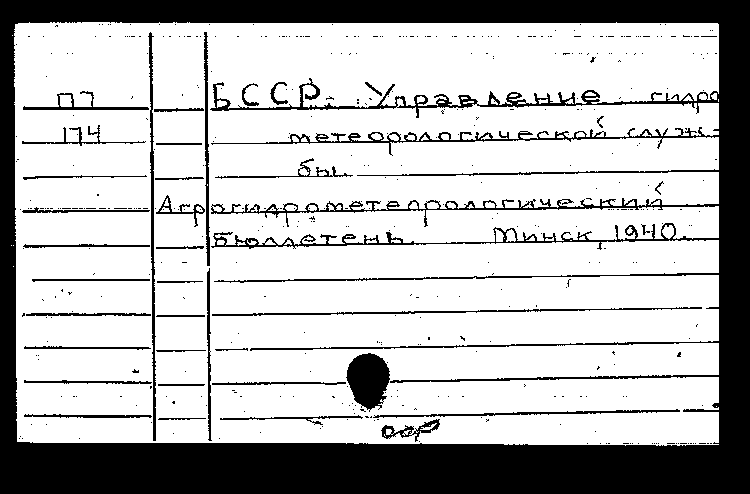 П7 БССР. Управление гидро
174 метеорологической служ-
бы.
Агрогидрометеорологический
бюллетень. Минск, 1940.